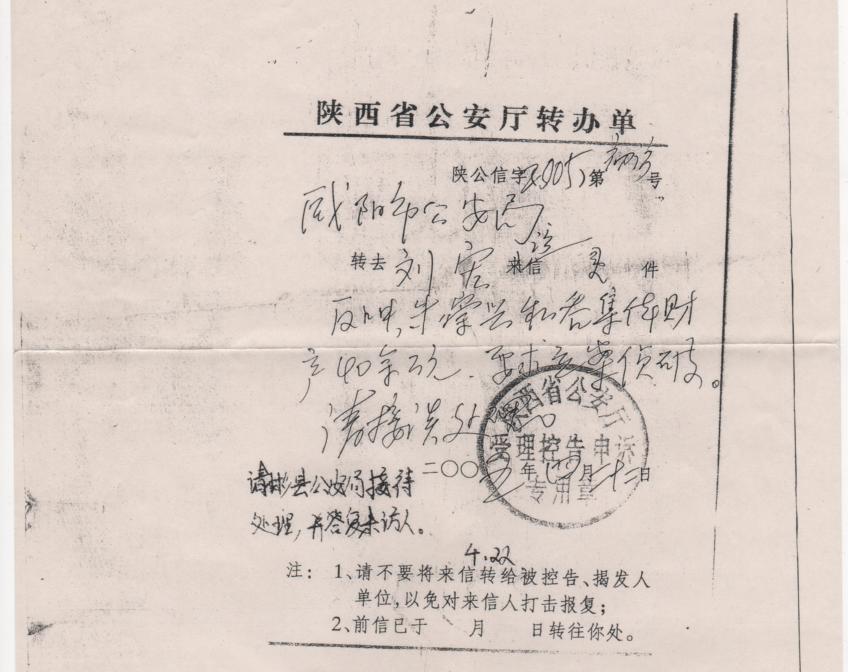 陕西省公安厅转办单
陕公信字2005)第 号
咸阳市公安局
转去刘宏来信 件
访
反映朱学兴私吞集体财
产40余万元.要求立案侦破。
请接谈处
陕西省公安厅
受理控告申诉
专用章
二〇〇五年四月二十二日
请彬县公安局接待
处理,并答复来访人。
4.22
注: 1、请不要将来信转给被控告、揭发人
单位,以免对来信人打击报复;
2、前信已于 月 日转往你处。